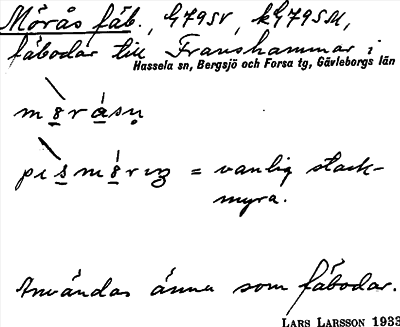 Mörås fäb., G79SV, kG79SM,
fäbodar till Franshammar i
Hassela sn, Bergsjö och Forsa tg, Gävleborgs län
= vanlig stack-
myra.
Användas ännu som fäbodar.
LARS LARSSON 1933